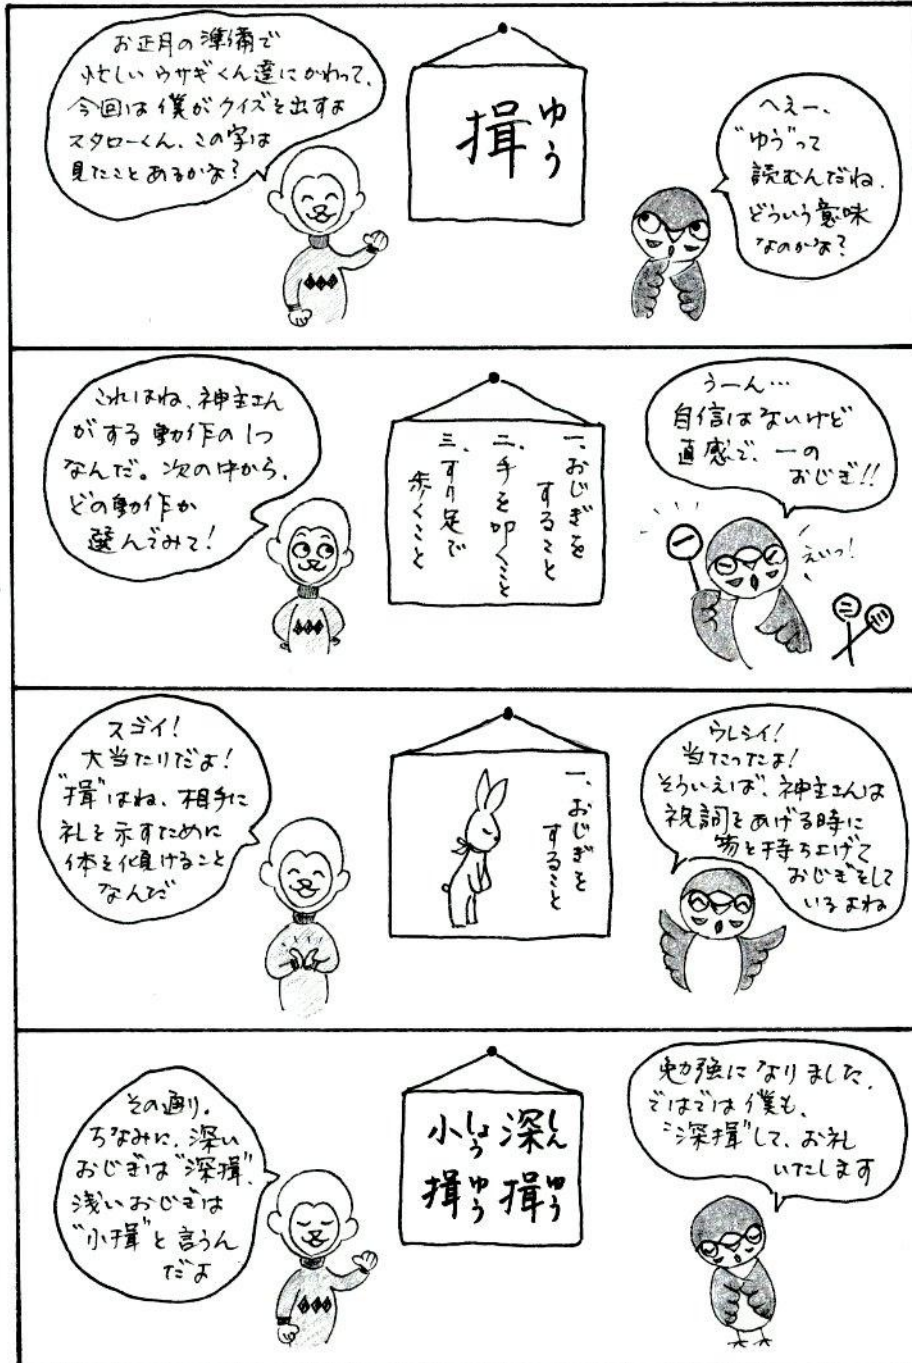 お正月の準備で
忙しいウサギくん達にかわって、
今回は僕がクイズを出すよ
スタローくん、この字は
見たことあるかな?
揖
ゆう
へえー、
"ゆう"って
読むんだね、
どういう意味
なのかな?
これはね、神主さん
がする動作の1つ
なんだ。次の中から、
どの動作か
選んでみて!
一、おじぎを
すること
二、手を叩くこと
三、すり足で
歩くこと
うーん…
自信はないけど
直感で、一の
おじぎ!!
一
えいっ!
二
三
スゴイ!
大当たりだよ!
"揖"はね、相手に
礼を示すために
体を傾けること
なんだ
一、おじぎを
すること
ウレシイ!
当たったよ!
そういえば、神主さんは
祝詞をあげる時に
笏を持ち上げて
おじぎをして
いるよね
その通り。
ちなみに、深い
おじぎは"深揖"、
浅いおじぎは
"小揖"と言うん
だよ
深揖
しんゆう
小揖
しょうゆう
勉強になりました。
ではでは僕も、
"深揖"して、お礼
いたします